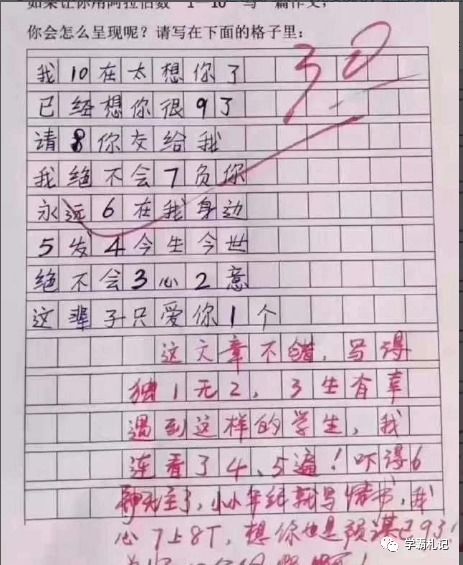 如果让你用阿拉伯数"1—10"写一篇作文,
你会怎么呈现呢？请写在下面的格子里：
30
我10在太想你了
已经想你很9了
请8你交给我
我绝不会7负你
永远6在我身边
5发4今生今世
绝不会3心2意
这辈子只爱你1个
这文章不错，写得
独1无2，3生有幸
遇到这样的学生，我
连看了4、5遍！吓得6
神无主了，小小年纪就写情书，我
心7上8下，想你也是预谋已9了！
学霸札记